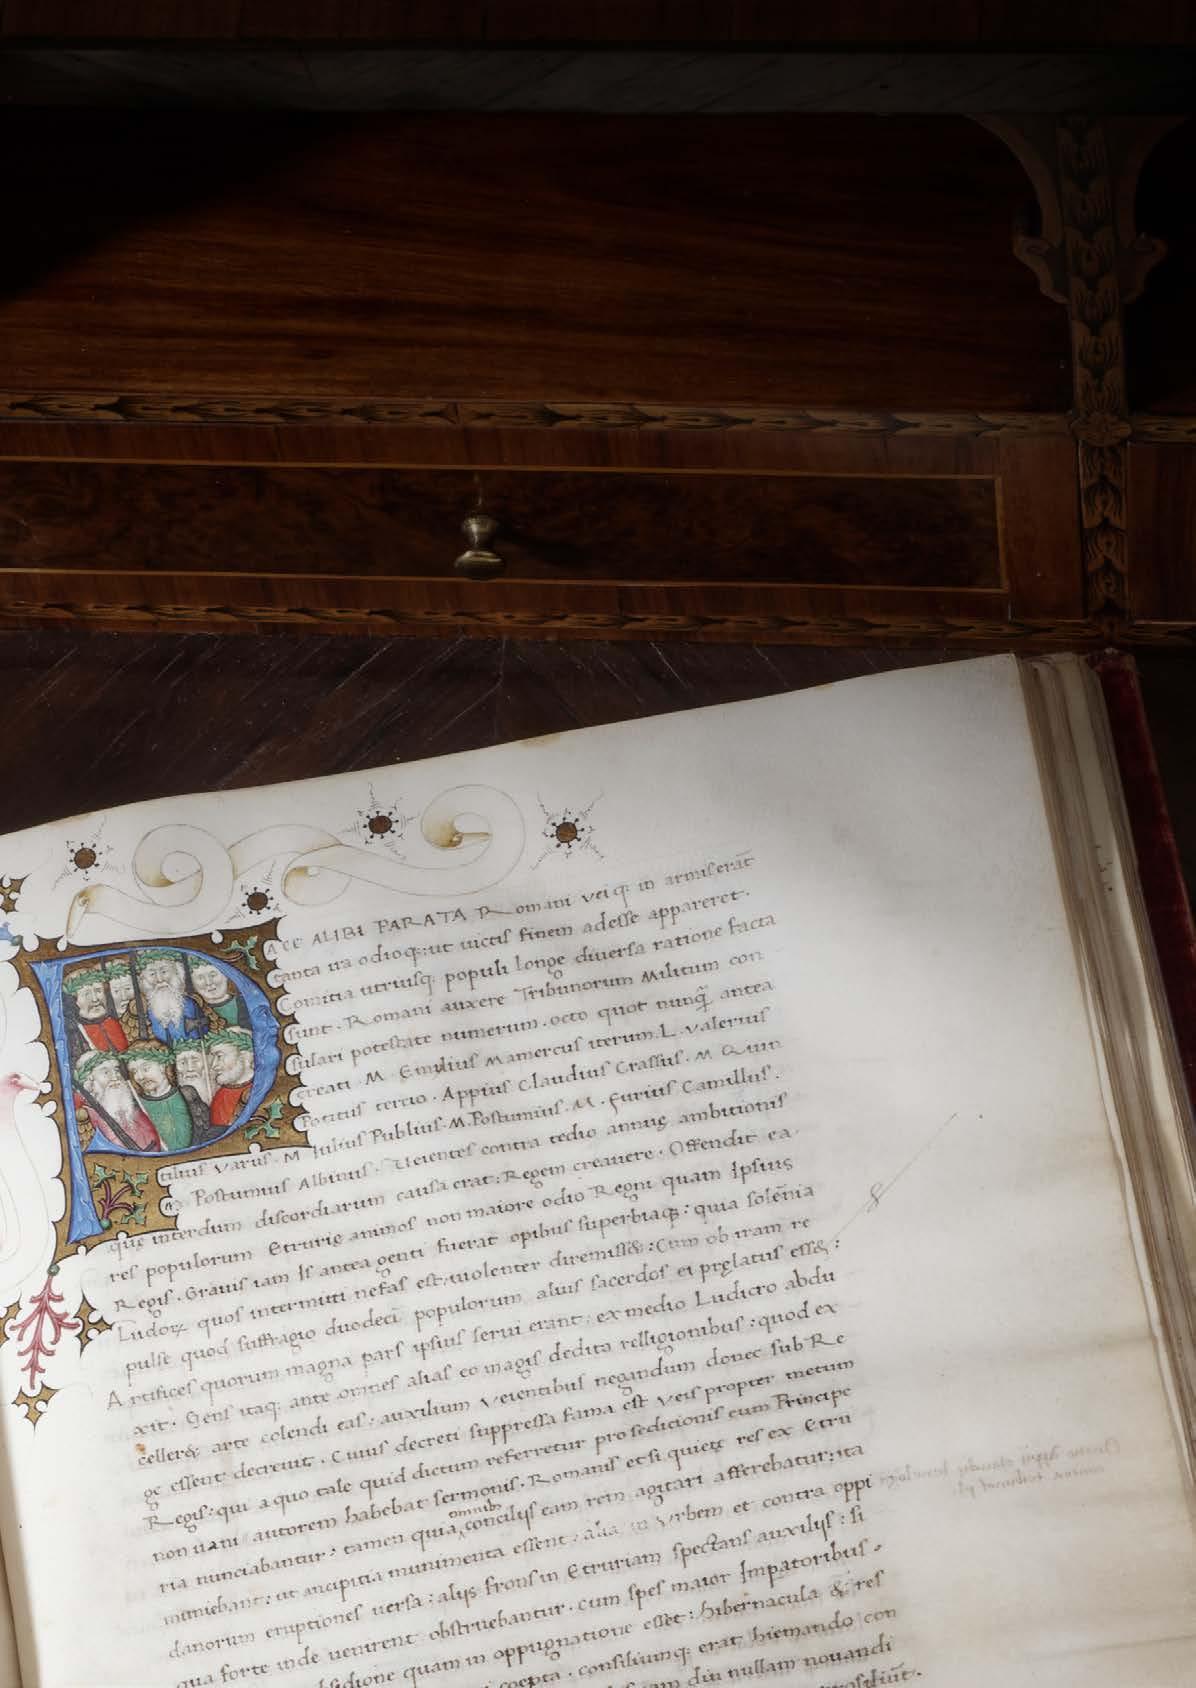 PACE ALIBI PARATA Romani veiq; in armis erāt
tanta ira odioq;: ut uictis finem adesse appareret.
Comitia utriusq; populi longe diuersa ratione facta
sunt. Romani auxere Tribunorum Militum con
sulari potestate numerum. octo quot nunq̃ antea
creati. M. Emilius Mamercus iterum. L. Valerius
Potitus tercio. Appius Claudius Crassus. M. Quin
tilius Varus. M Iulius Publius. M. Postumius. M. Furius Camillus.
M. Postumius Albinus. Ueientes contra tedio annuę ambitionis
quę interdum discordiarum causa erat: Regem creauere. Offendit ea
res populorum Etrurię animos non maiore odio Regni quam Ipsius
Regis. Grauis iam Is antea genti fuerat opibus superbiaq;: quia solēnia
Ludoꝝ quos intermitti nefas est, uiolenter diremiss&: Cum ob iram re
pulsę quod suffragio duodeci populorum alius sacerdos ei pręlatus ess&:
Artifices quorum magna pars ipsius serui erant: ex medio Ludicro abdu
xit. Gens itaq; ante omnes alias eo magis dedita religionibus: quod ex
celler& arte colendi eas: auxilium Veientibus negandum donec sub Re
ge essent: decreuit. Cuius decreti suppressa fama est Veis propter metum
Regis: qui a quo tale quid dictum referretur pro sedicionis eum Principe
non uani autorem habebat sermonis. Romanis etsi quietę res ex Etru
ria nunciabantur: tamen quia omnibꝫ concilijs eam rem agitari afferebatur: ita
muniebant: ut ancipitia munimenta essent: alia in Vrbem et contra oppi
danorum eruptiones uersa: alijs frons in Etruriam spectans auxilijs: si
qua forte inde uenirent obstruebantur. Cum spes maior Impatoribus
obsidione quam in oppugnatione esset: Hibernacula & res
coepta. consiliumq; erat hiemando con
diu nullam nouandi